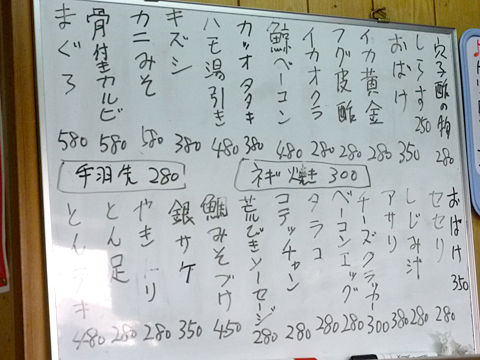 穴子酢の物 280
しらす 250
おばけ 350
イカ黄金 280
フグ皮酢 280
イカオクラ 280
鯨ベーコン 480
カツオタタキ 380
ハモ湯引き 480
キズシ 380
カニみそ 580
骨付きカルビ 580
まぐろ 580
ネギ焼き 300
手羽先 280
おばけ 350
セセリ 280
しじみ汁 280
アサリ 380
チーズクラッカ 300
ベーコンエッグ 280
タラコ 280
コテッチャン 280
荒びきソーセージ 280
鯛みそづけ 450
銀サケ 350
やき リ 280
とん足 280
とん キ 480